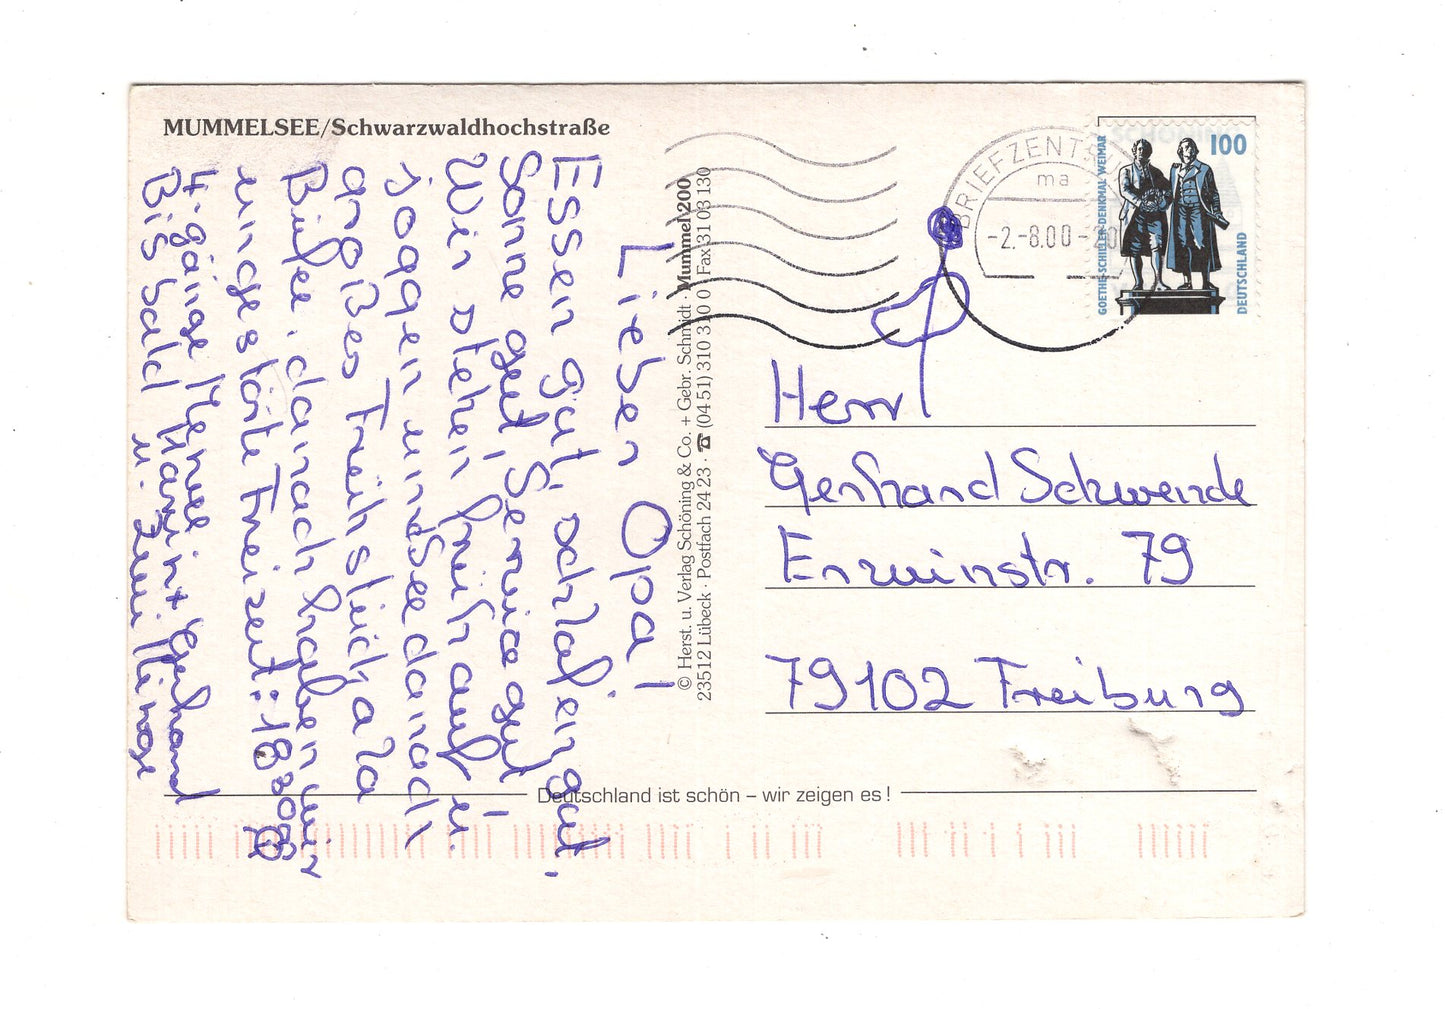 MUMMELSEE/Schwarzwaldhochstraße
Lieber Opa!
Essen gut, schlafen gut,
Sonne gut, Service gut!
Wir stehen früh auf u.
joggen um See danach
großes Frühstück a la
Büfee, danach haben wir
ungestörte Freizeit: 18 30
4-gänge Menue
Bis bald
u.
© Herst. u. Verlag Schöning & Co. + Gebr. Schmidt · Mummel 200
23512 Lübeck · Postfach 24 23 · ☎ (04 51) 310 310 0 Fax 31 03 130
BRIEFZENTR
ma
-2.-8.00-
100
GOETHE-SCHILLER-DENKMAL WEIMAR
DEUTSCHLAND
Herr
Gerhard Schwende
Erwinstr. 79
79102 Freiburg
Deutschland ist schön – wir zeigen es!